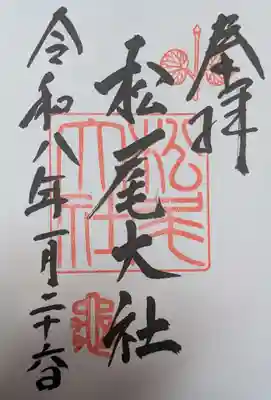 奉拝
松尾大社
松尾大社
令和八年一月二十六日